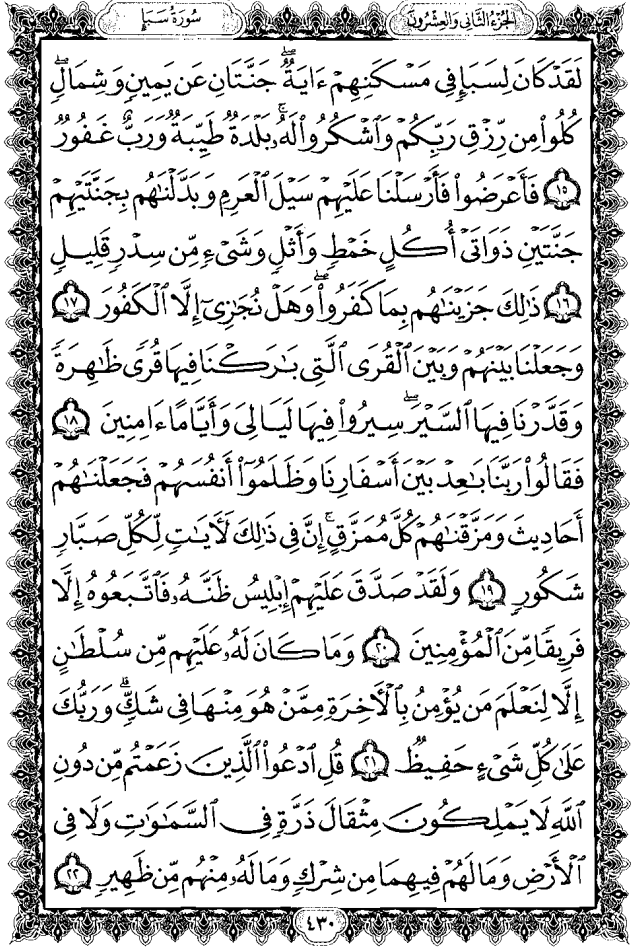 الجزء الثاني والعشرون
سورة سبإ
لَقَدْ كَانَ لِسَبَإٍ فِي مَسْكَنِهِمْ ءَايَةٌ ۖ جَنَّتَانِ عَن يَمِينٍ وَشِمَالٍ ۖ
كُلُوا۟ مِن رِّزْقِ رَبِّكُمْ وَٱشْكُرُوا۟ لَهُۥ ۚ بَلْدَةٌ طَيِّبَةٌ وَرَبٌّ غَفُورٌ
١٥ فَأَعْرَضُوا۟ فَأَرْسَلْنَا عَلَيْهِمْ سَيْلَ ٱلْعَرِمِ وَبَدَّلْنَٰهُم بِجَنَّتَيْهِمْ
جَنَّتَيْنِ ذَوَاتَىْ أُكُلٍ خَمْطٍ وَأَثْلٍ وَشَىْءٍ مِّن سِدْرٍ قَلِيلٍ
١٦ ذَٰلِكَ جَزَيْنَٰهُم بِمَا كَفَرُوا۟ ۖ وَهَلْ نُجَٰزِىٓ إِلَّا ٱلْكَفُورَ ١٧
وَجَعَلْنَا بَيْنَهُمْ وَبَيْنَ ٱلْقُرَى ٱلَّتِى بَٰرَكْنَا فِيهَا قُرًى ظَٰهِرَةً
وَقَدَّرْنَا فِيهَا ٱلسَّيْرَ ۖ سِيرُوا۟ فِيهَا لَيَالِىَ وَأَيَّامًا ءَامِنِينَ ١٨
فَقَالُوا۟ رَبَّنَا بَٰعِدْ بَيْنَ أَسْفَارِنَا وَظَلَمُوٓا۟ أَنفُسَهُمْ فَجَعَلْنَٰهُمْ
أَحَادِيثَ وَمَزَّقْنَٰهُمْ كُلَّ مُمَزَّقٍ ۚ إِنَّ فِى ذَٰلِكَ لَءَايَٰتٍ لِّكُلِّ صَبَّارٍ
شَكُورٍ ١٩ وَلَقَدْ صَدَّقَ عَلَيْهِمْ إِبْلِيسُ ظَنَّهُۥ فَٱتَّبَعُوهُ إِلَّا
فَرِيقًا مِّنَ ٱلْمُؤْمِنِينَ ٢٠ وَمَا كَانَ لَهُۥ عَلَيْهِم مِّن سُلْطَٰنٍ
إِلَّا لِنَعْلَمَ مَن يُؤْمِنُ بِٱلْءَاخِرَةِ مِمَّنْ هُوَ مِنْهَا فِى شَكٍّ ۗ وَرَبُّكَ
عَلَىٰ كُلِّ شَىْءٍ حَفِيظٌ ٢١ قُلِ ٱدْعُوا۟ ٱلَّذِينَ زَعَمْتُم مِّن دُونِ
ٱللَّهِ لَا يَمْلِكُونَ مِثْقَالَ ذَرَّةٍ فِى ٱلسَّمَٰوَٰتِ وَلَا فِى
ٱلْأَرْضِ وَمَا لَهُمْ فِيهِمَا مِن شِرْكٍ وَمَا لَهُۥ مِنْهُم مِّن ظَهِيرٍ ٢٢
٤٣٠